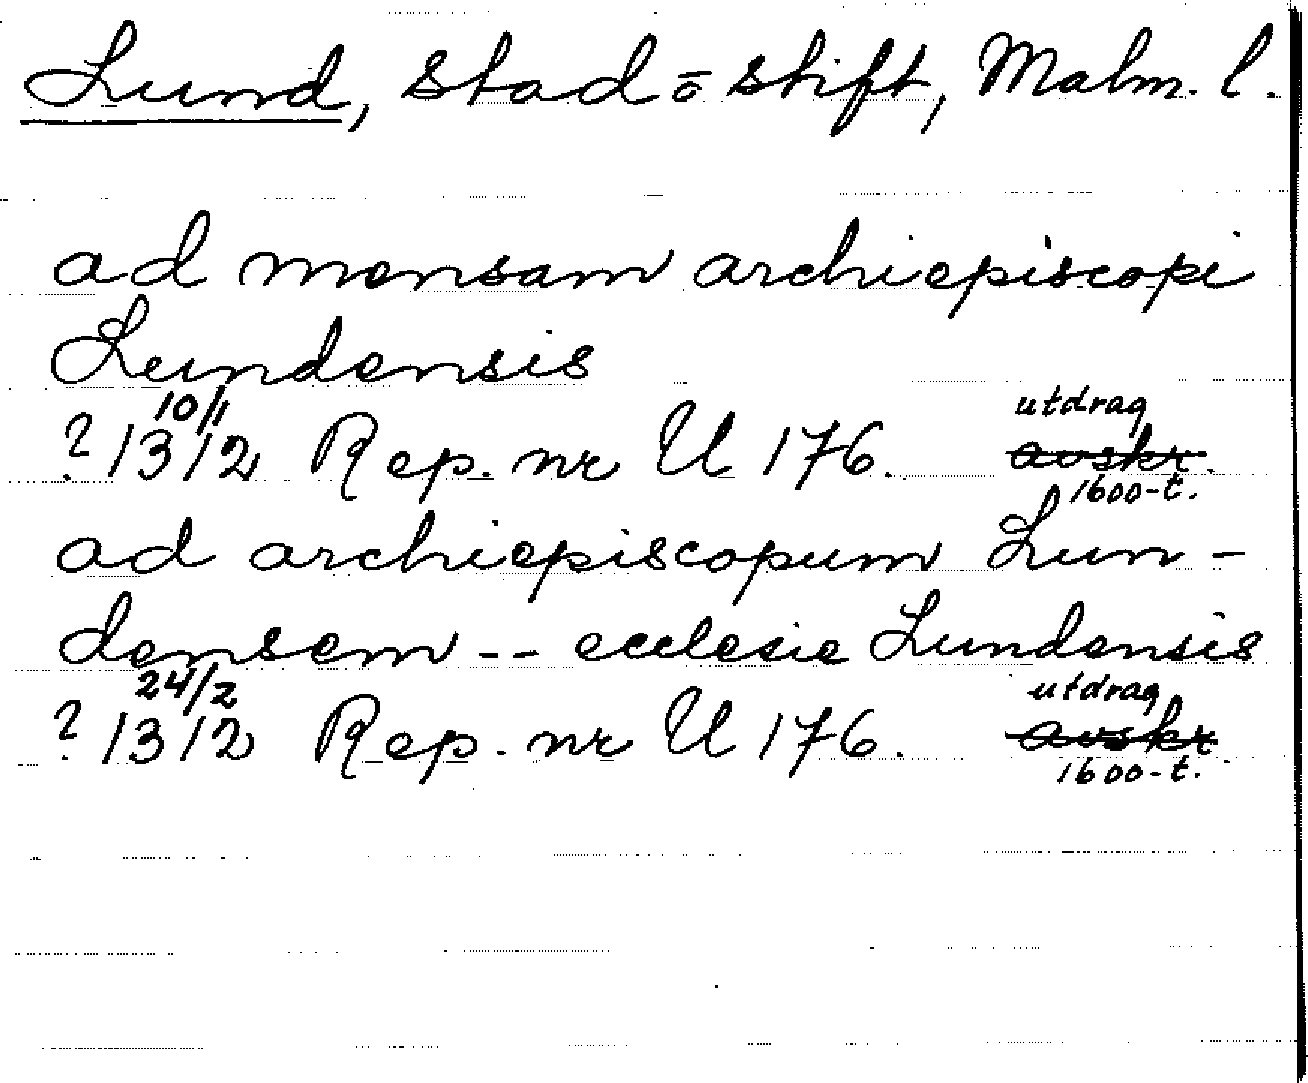 Lund, stad o stift, Malm. l.
ad mensam archiepiscopi
Lundensis
10/1
? 1312 Rep. nr U 176. utdrag
avskr.
1600-t.
ad archiepiscopum Lun-
densem -- ecclesie Lundensis
24/2
? 1312 Rep. nr U 176. utdrag
avskr
1600-t.